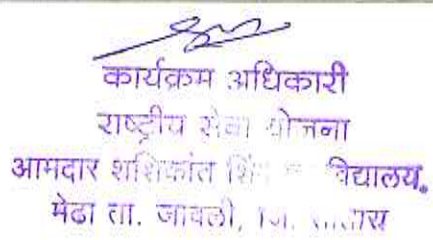 कार्यक्रम अधिकारी
राष्ट्रीय सेवा योजना
आमदार शशिकांत विद्यालय,
मेढा ता. जावली, जि.